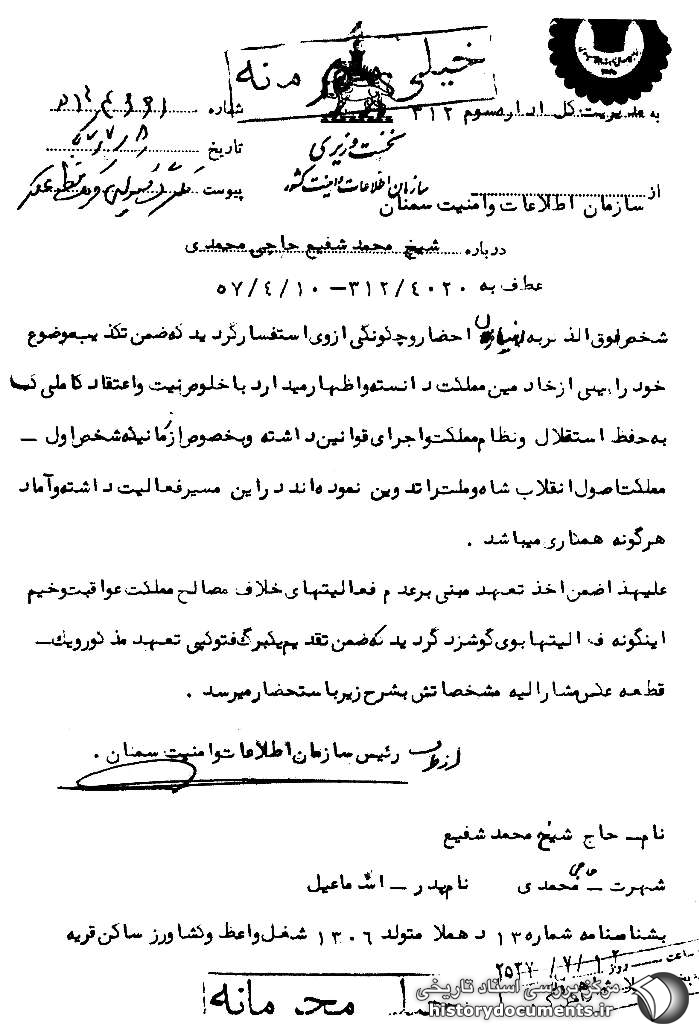 خیلی محرمانه
به مدیریت کل اداره سوم ۳۱۲
شماره
نخست وزیری
تاریخ
سازمان اطلاعات و امنیت کشور
پیوست
از سازمان اطلاعات وامنیت سمنان
درباره شیخ محمد شفیع حاجی محمدی
عطف به ۳۱۲/۴۰۲۰ – ۵۷/۴/۱۰
شخص فوق الذکر به احضار وچگونگی ازوی استفسار گردید که ضمن تکذیب موضوع
خود را یکی از خادمین مملکت دانسته واظهار میدارد با خلوص نیت واعتقاد کاملی که
به حفظ استقلال ونظام مملکت واجرای قوانین داشته وبخصوص از زمانیکه شخص اول –
مملکت اصول انقلاب شاه وملت را تدوین نموده اند در این مسیر فعالیت داشته وآماده
هرگونه همکاری میباشد .
علیهذا ضمن اخذ تعهد مبنی بر عدم فعالیتهای خلاف مصالح مملکت عواقب وخیم
اینگونه فعالیتها بوی گوشزد گردید که ضمن تقدیم یکبرگ فتوکپی تعهد مذکور ویک –
قطعه عکس مشارالیه مشخصاتش بشرح زیر باستحضار میرسد .
از طرف رئیس سازمان اطلاعات وامنیت سمنان .
نام – حاج شیخ محمد شفیع
شهرت – حاجی محمدی نام پدر –
بشناسنامه شماره ۱۳ متولد ۱۳۰۶ شغل واعظ وکشاورز ساکن قریه
ساعت روز ۲۵۳۷/۷/۱۲
خیلی محرمانه
مرکز بررسی اسناد تاریخی
historydocuments.ir